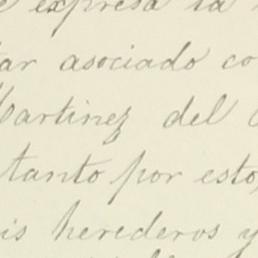 e expresa la
ar asociado co
Martinez del C
tanto por esto,
is herederos y